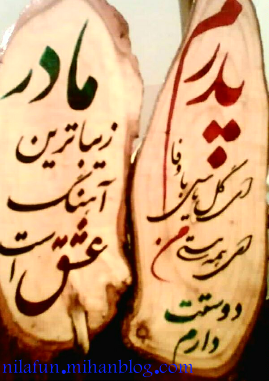 پدرم
ای گل یاس با وفا
ای همه هستی من
دوستت
دارم
مادر
زیباترین
آهنگ
عشق است
nilafun.mihanblog.com